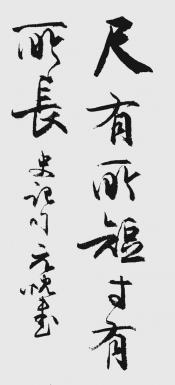 尺有所短寸有
所長 史記句 元悅書